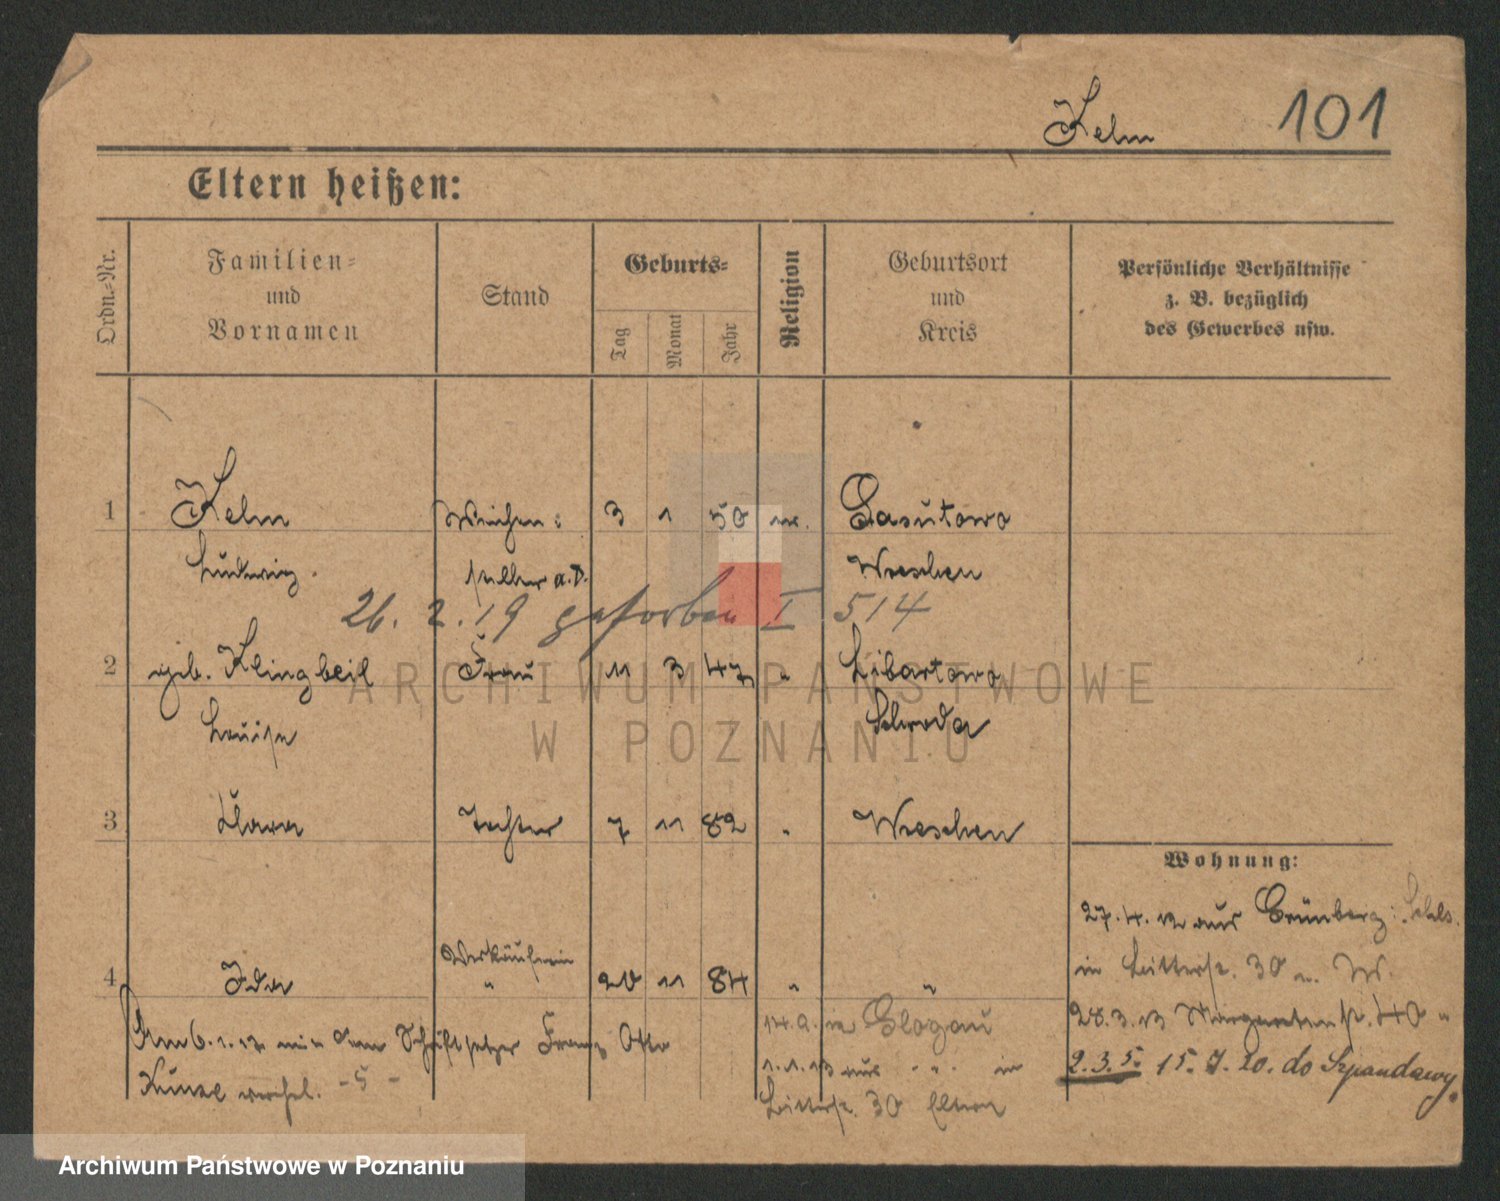 Kelm 101
Eltern heißen:
Ordn.-Nr.
Familien-
und
Vornamen
Stand
Geburts-
Tag
Monat
Jahr
Religion
Geburtsort
und
Kreis
Persönliche Verhältnisse
z. B. bezüglich
des Gewerbes usw.
1 Kelm Weichen: 3 1 50 ev. Gasutowo
Ludwig. steller a.D. Wreschen
26. 2. 19 gestorben I 514
2 geb. Klingbeil Frau 11 3 47 " Libartowo
Louise Schroda
3 Klara Tochter 7 11 82 " Wreschen
Wohnung:
27.4.12 aus Grünberg i. Schls.
in Bitterstr. 30 W.
Verkäuferin
4 Ida " 20 11 84 " "
Am 6.1.13 mit dem Schriftsetzer Franz Otto
Kunze verehel. -5-
14.9. in Glogau
1.1.13 aus " in
Bitterstr. 30 Eltern
28.3.13 Margaretenstr. 40
2.3.5. 15. 7. 20. do Szpandawy.
ARCHIWUM PAŃSTWOWE
W POZNANIU
Archiwum Państwowe w Poznaniu